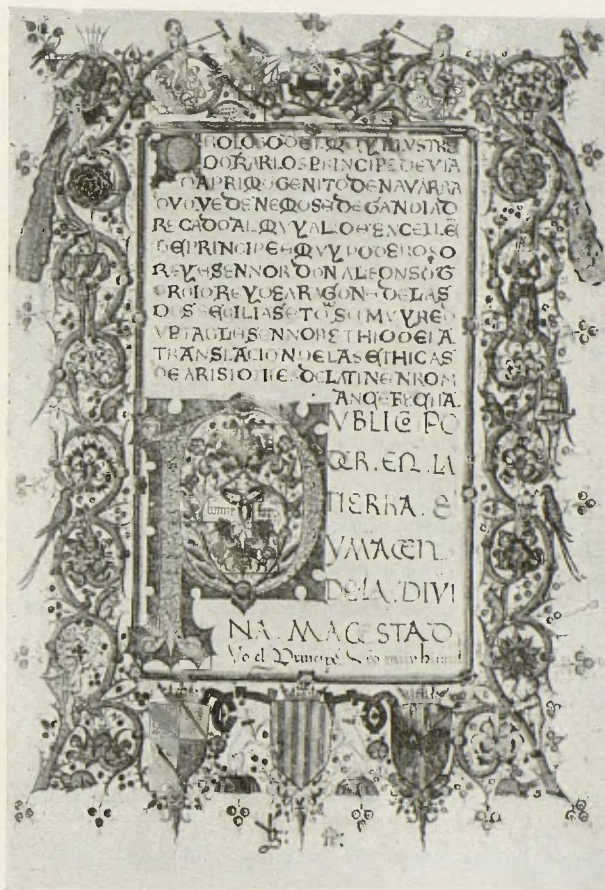 PROLOGO DEL MUY ILLUSTRE
DO KARLOS PRINCIPE DE VIA
NA PRIMOGENITO DE NAVARRA
DUQUE DE NEMOS & DE GANDIA D
REÇADO AL MUY ALTO & EXCELLE
PRINCIPE & MUY PODEROSO
REY & SENNOR DON ALFONSO
REY DE ARAGON & DE LAS
DOS SECILIAS ET SU MUY RED
UPTABLE SENNOR E THIO DE LA
TRANSLACION DE LAS ETHICAS
DE ARISTOTILES DE LATIN EN ROM
ANÇE FECHA
PUBLICO PO
DER . EN . LA
TIERRA . E
YMAGEN .
DE LA . DIVI
NA . MAGESTAD
Yo el Principe